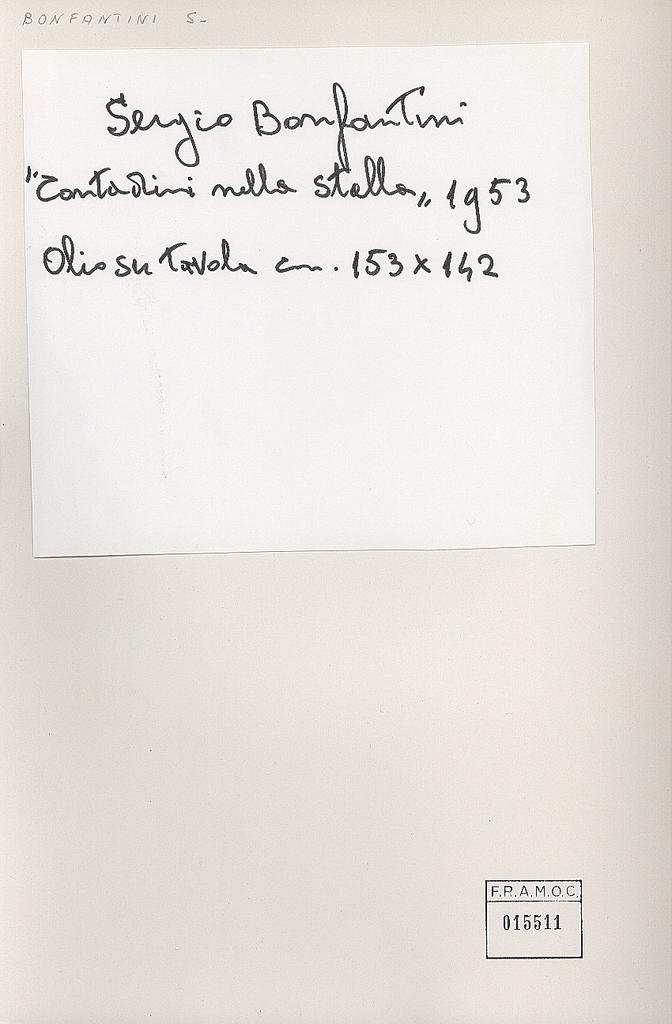 BONFANTINI S-
Sergio Bonfantini
"Contadini nella stalla„ 1953
Olio su Tavola cm. 153 x 142
F.R.A.M.O.C.
015511